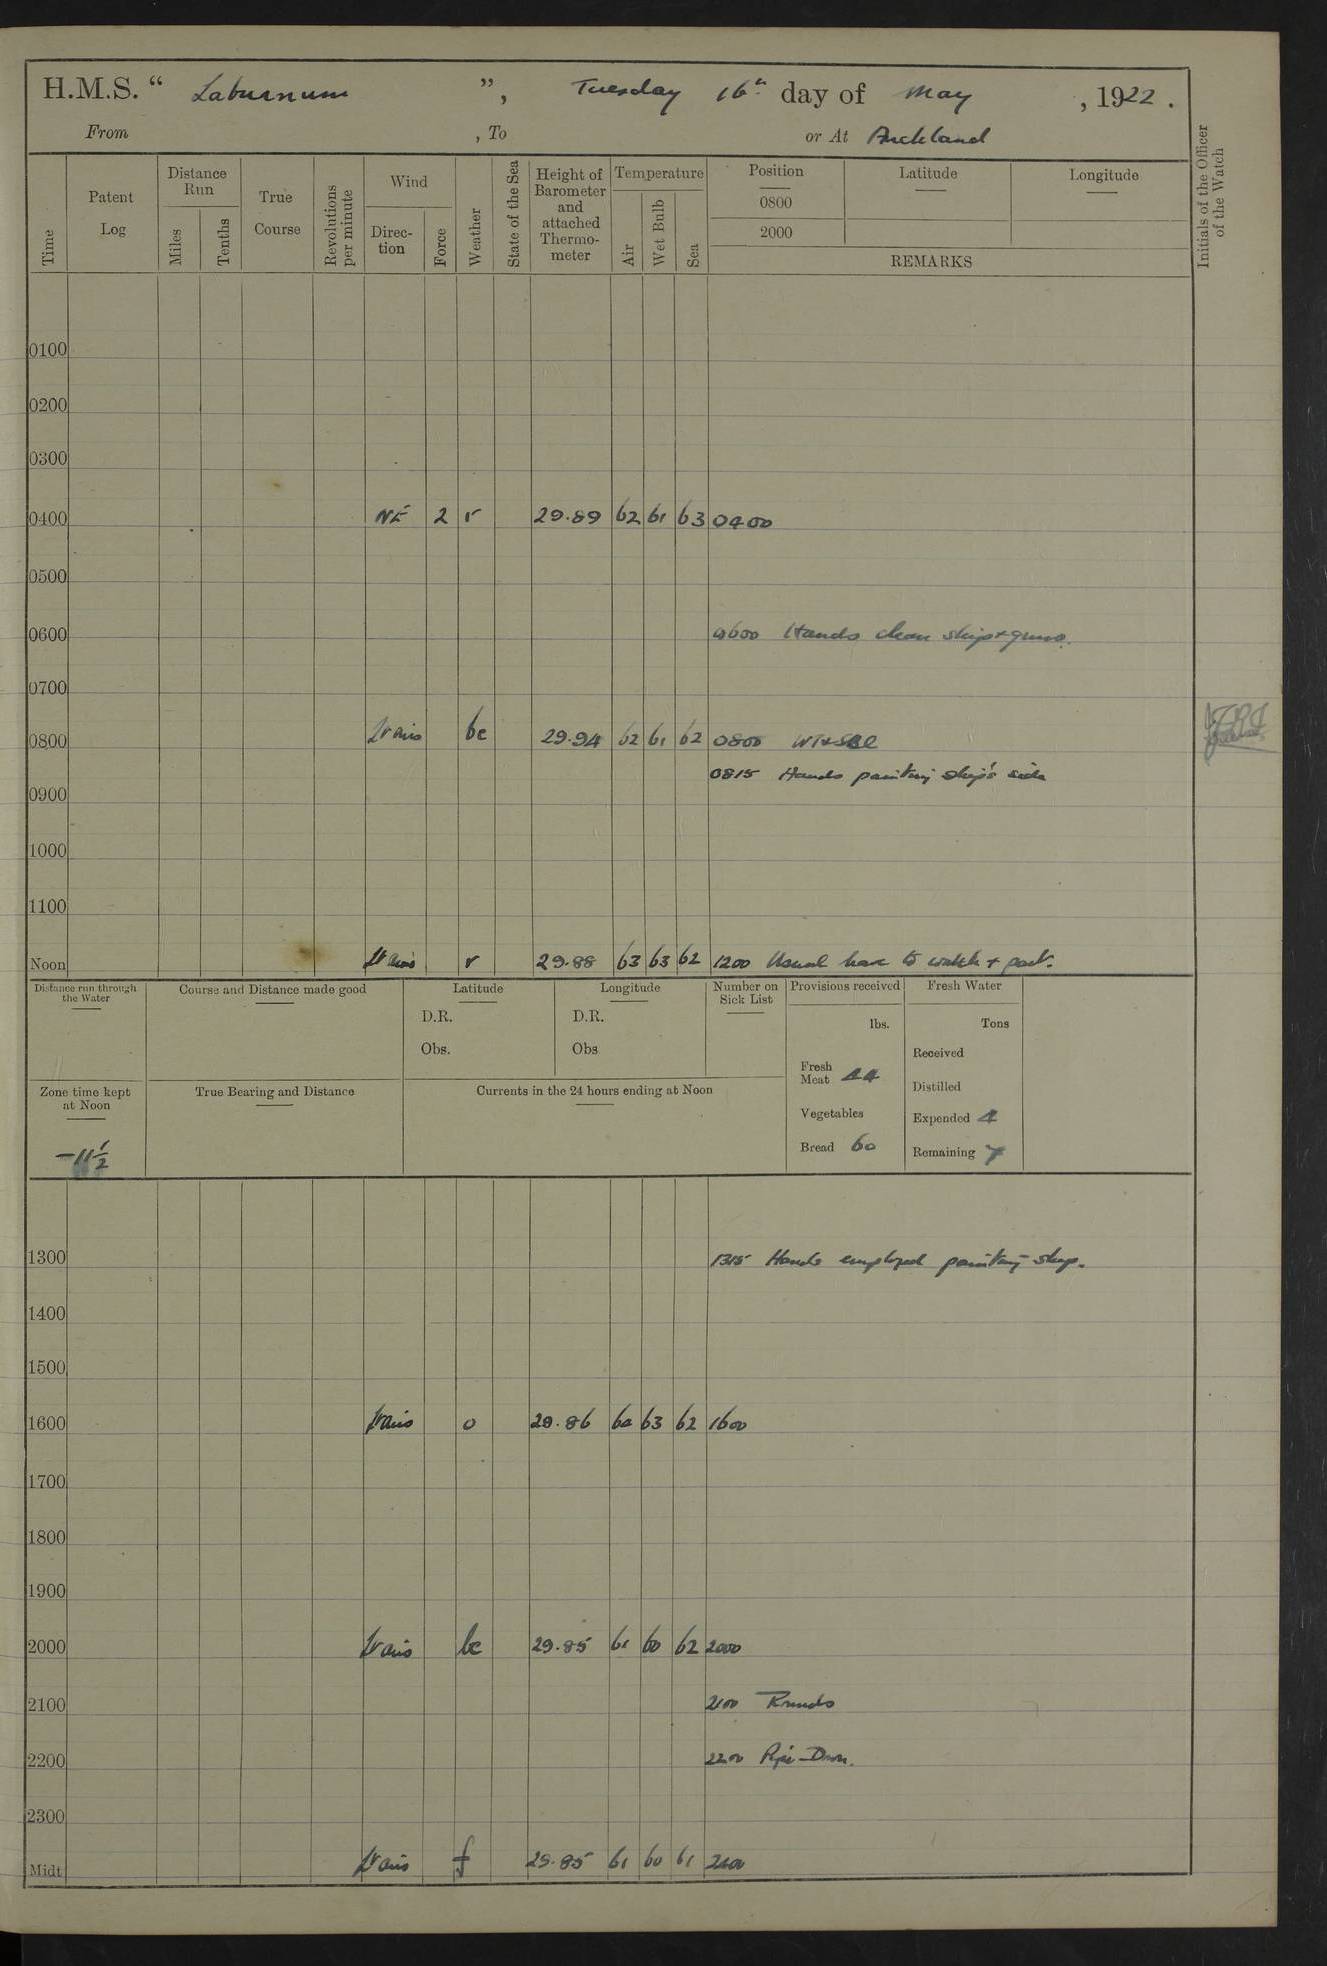 H.M.S. “ Laburnum ”, Tuesday 16th day of May , 1922 .
From , To or At Auckland
Time Patent Log Distance Run Miles Tenths True Course Revolutions per minute Wind Direction Force Weather State of the Sea Height of Barometer and attached Thermometer Temperature Air Wet Bulb Sea Position 0800 2000 Latitude Longitude REMARKS Initials of the Officer of the Watch
0100
0200
0300
0400 NE 2 r 29.89 62 61 63 0400
0500
0600 0600 Hands clean ship + guns.
0700
0800 Lt airs bc 29.94 62 61 62 0800
0815 Hands painting ship's side
0900
1000
1100
Noon Lt airs r 29.88 63 63 62 1200 Usual leave to watch + part.
Distance run through the Water Course and Distance made good Latitude Longitude Number on Sick List Provisions received Fresh Water
D.R. D.R. lbs. Tons
Obs. Obs Received
Fresh Meat 44 Distilled
Zone time kept at Noon True Bearing and Distance Currents in the 24 hours ending at Noon
Vegetables Expended 4
-11½ Bread 60 Remaining 7
1300 1315 Hands employed painting ship.
1400
1500
1600 Lt airs o 29.86 62 1600
1700
1800
1900
2000 Lt airs bc 29.85 61 60 62 2000
2100 2100 Rounds
2200 2200 Pipe-Down.
2300
Midt Lt airs f 29.85 61 60 61 2400